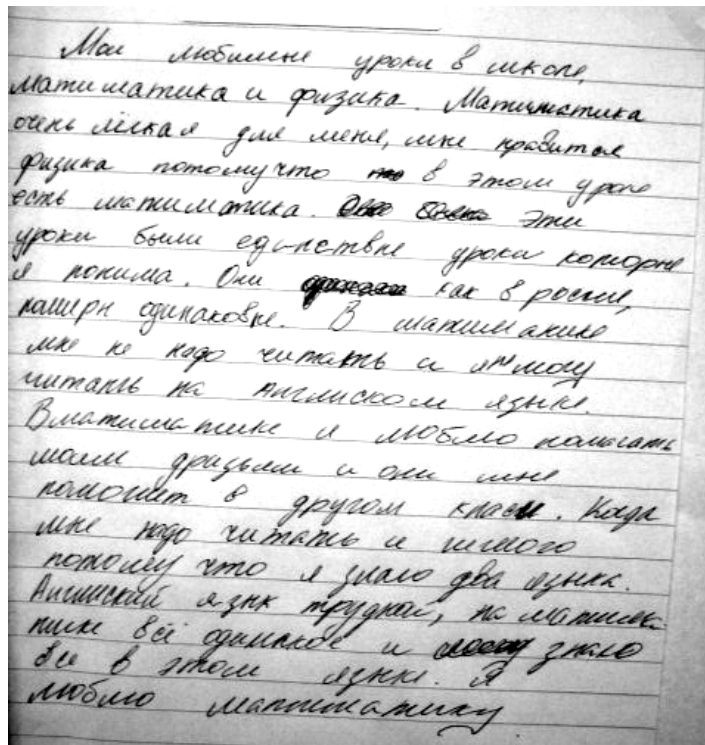 Мои любимые уроки в школе,
матиматика и физика. Матиматика
очень лёгкая для меня, мне нравится
физика потомучто в этом уроке
есть матиматика. Эти
уроки были единствне уроки которые
я понима. Они как в росии,
намерн одинаковне. В матиматике
мне не надо читать и я не могу
читать на Англиском языке.
В матиматике я люблю помагать
моим друзьям и они мне
помогжет в другом класи. Когда
мне надо читать и
потому что я знаю два языка.
Англиский язнк трудной, на матима
тике всё одинакое и знаю
все в этом язнке. Я
люблю матиматику